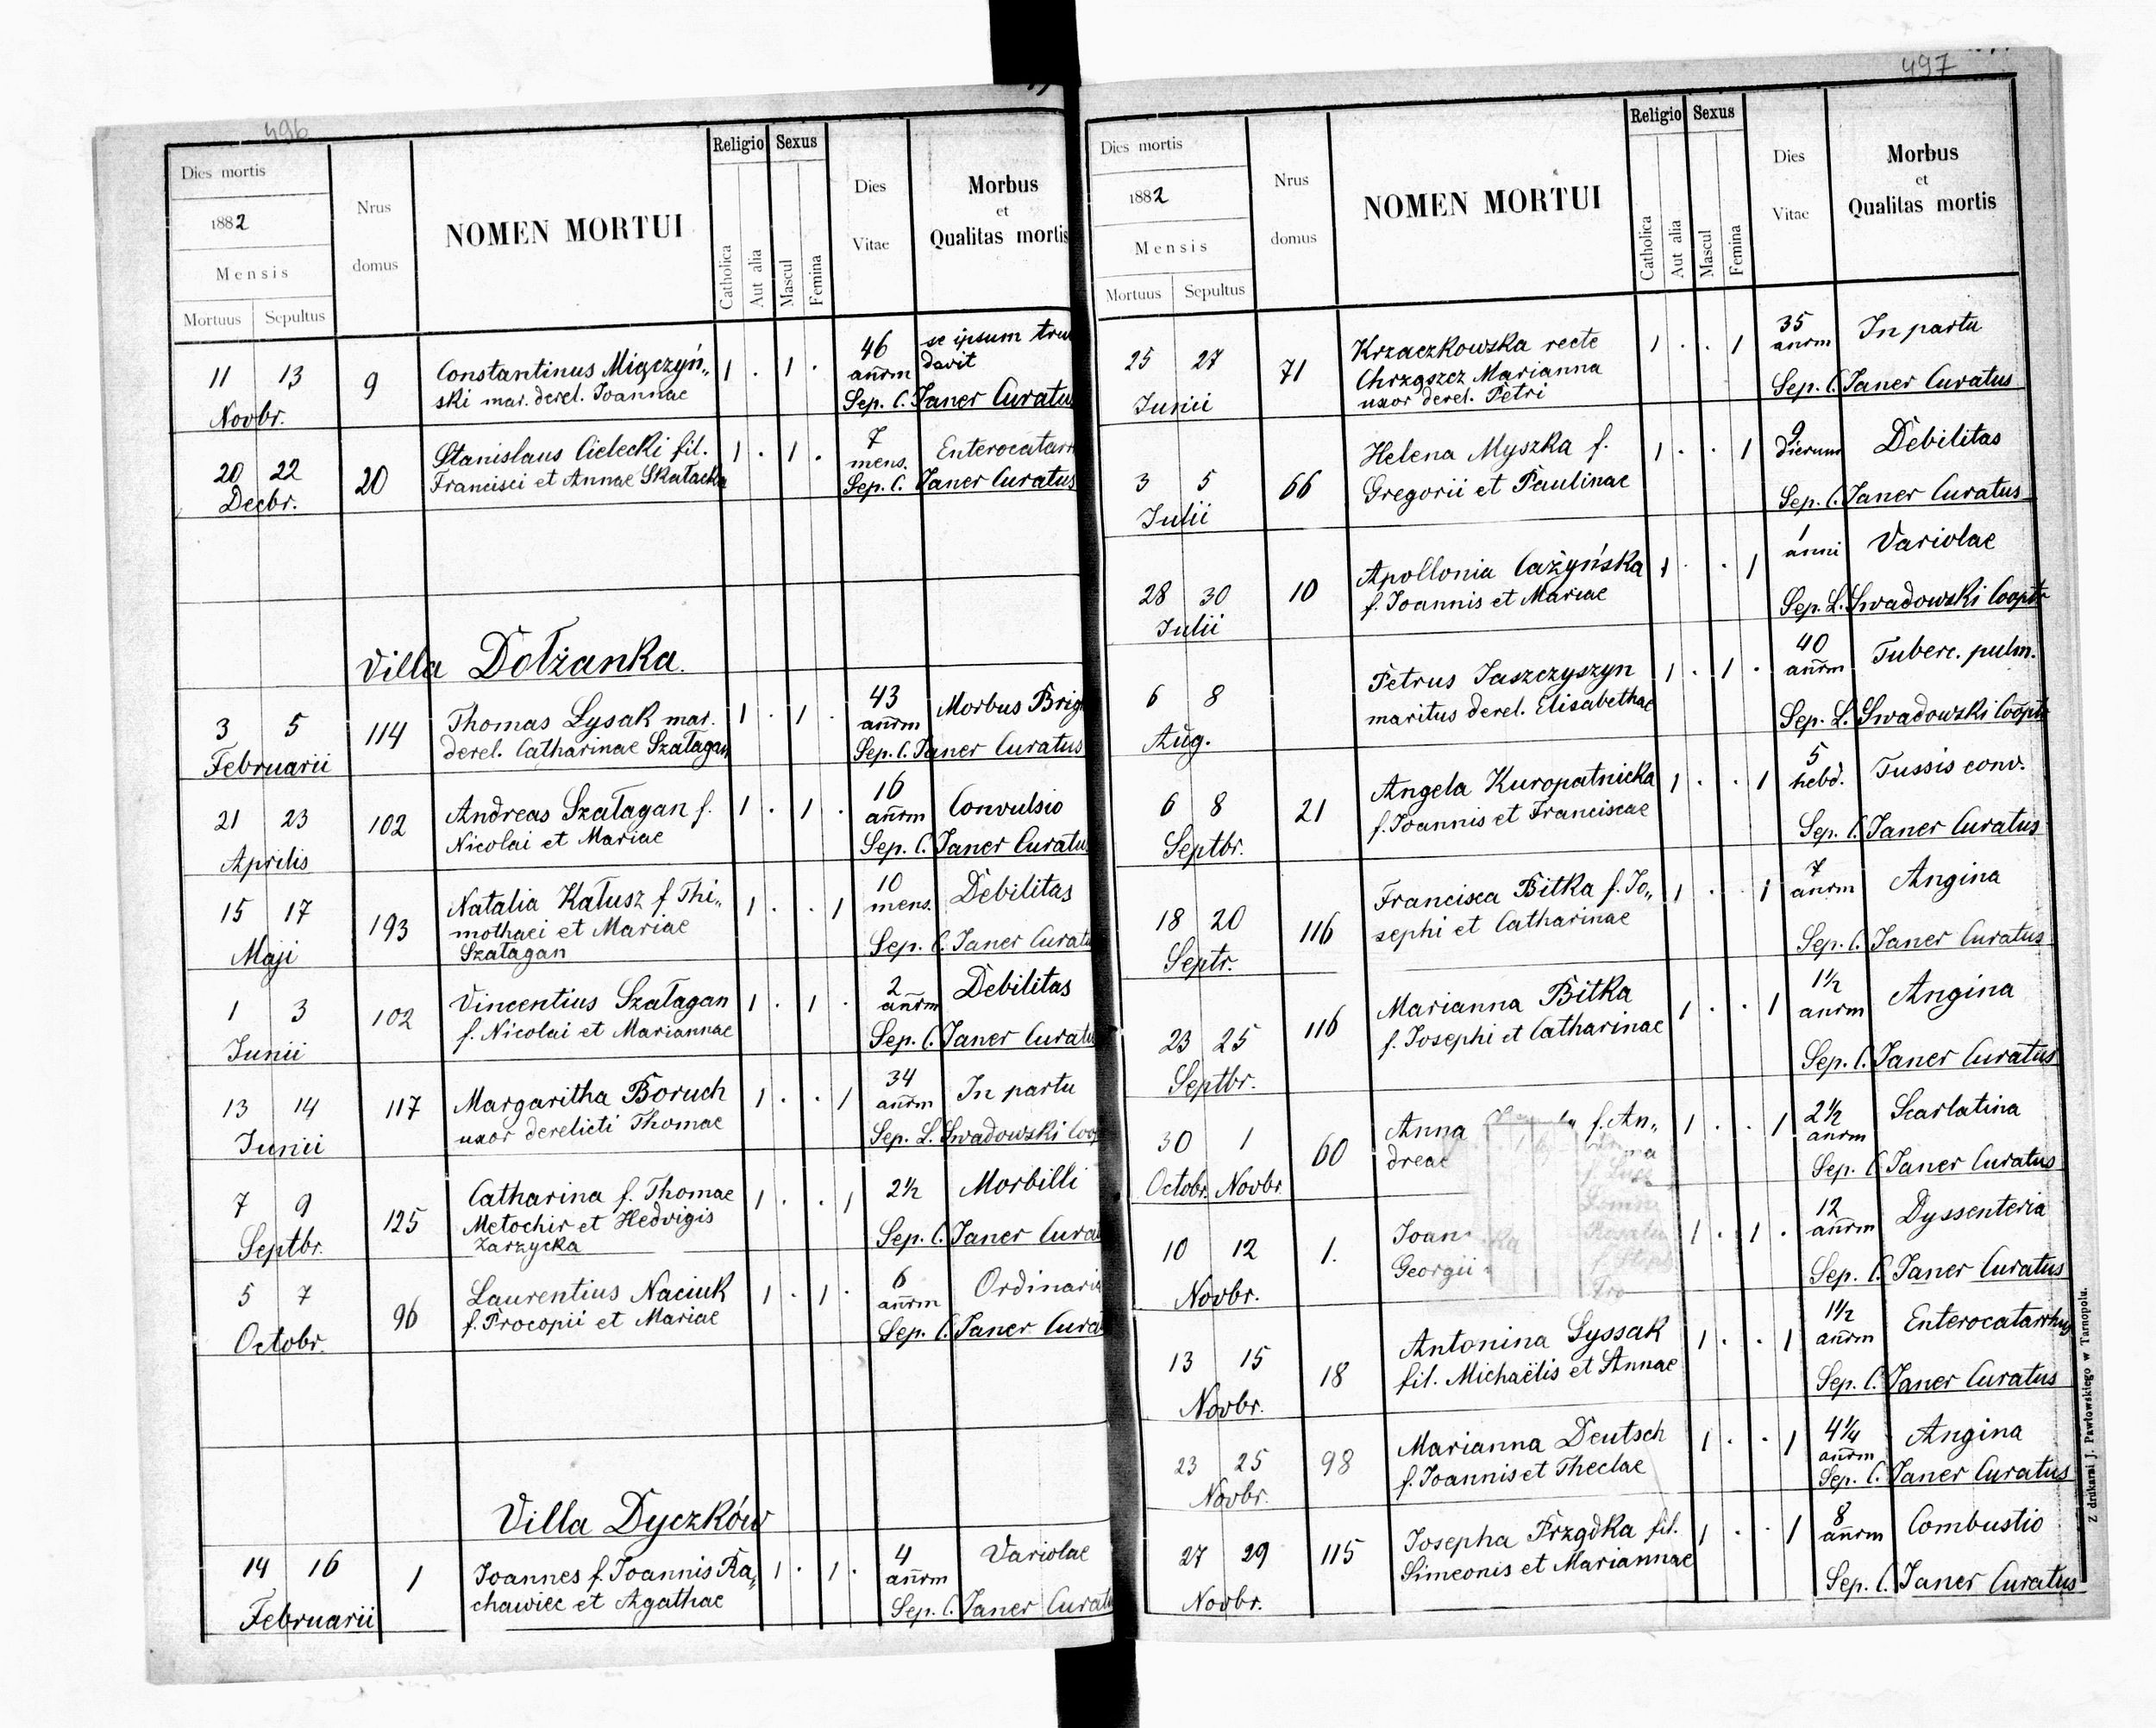 496
Dies mortis
1882
Mensis
Mortuus Sepultus
Nrus
domus
NOMEN MORTUI
Religio
Catholica
Aut alia
Sexus
Mascul
Femina
Dies
Vitae
Morbus
et
Qualitas mortis
11 13
Novbr.
9
Constantinus Miączyń„
ski mar. derel. Joannae
1 . 1 .
46
anrm
se ipsum tru
davit
Sep. C. Janer Curatus
20 22
Decbr.
20
Stanislaus Cielecki fil.
Francisci et Annae Skałacka
1 . 1 .
7
mens.
Enterocatarr
Sep. C. Janer Curatus
Villa Dołżanka.
3 5
Februarii
114
Thomas Lysak mar.
derel. Catharinae Szałagan
1 . 1 .
43
anrm
Morbus Brig
Sep. C. Janer Curatus
21 23
Aprilis
102
Andreas Szałagan f.
Nicolai et Mariae
1 . 1 .
16
anrm
Convulsio
Sep. C. Janer Curatu
15 17
Maji
193
Natalia Kałusz f Thi„
mothaei et Mariae
Szałagan
1 . . 1
10
mens.
Debilitas
Sep. C. Janer Curatu
1 3
Junii
102
Vincentius Szałagan
f. Nicolai et Mariannae
1 . 1 .
2
anrm
Debilitas
Sep. C. Janer Curatu
13 14
Junii
117
Margaritha Boruch
uxor derelicti Thomae
1 . . 1
34
anrm
In partu
Sep. L. Swadowski Coop
7 9
Septbr.
125
Catharina f. Thomae
Metochir et Hedvigis
Zarzycka
1 . . 1
2½
Morbilli
Sep. C. Janer Cura
5 7
Octobr.
96
Laurentius Naciuk
f. Procopii et Mariae
1 . 1 .
6
anrm
Ordinaria
Sep. C. Janer Cura
Villa Dyczków
14 16
Februarii
1
Joannes f. Joannis Ra„
chawiec et Agathae
1 . 1 .
4
anrm
Variolae
Sep. C. Janer Curatu
497
Dies mortis
1882
Mensis
Mortuus Sepultus
Nrus
domus
NOMEN MORTUI
Religio
Catholica
Aut alia
Sexus
Mascul
Femina
Dies
Vitae
Morbus
et
Qualitas mortis
25 27
Junii
71
Krzaczkowska recte
Chrząszcz Marianna
uxor derel. Petri
1 . . 1
35
anrm
In partu
Sep. C. Janer Curatus
3 5
Julii
66
Helena Myszka f.
Gregorii et Paulinae
1 . . 1
9
dierum
Debilitas
Sep. C. Janer Curatus
28 30
Julii
10
Apollonia Cażyńska
f. Joannis et Mariae
1 . . 1
1
anni
Variolae
Sep. L. Swadowski Cooptr
6 8
Aug.
Petrus Jaszczyszyn
maritus derel. Elisabethae
1 . 1 .
40
anrm
Tuberc. pulm.
Sep. L. Swadowski Cooptr
6 8
Septbr.
21
Angela Kuropatnicka
f. Joannis et Franciscae
1 . . 1
5
hebd.
Tussis conv.
Sep. C. Janer Curatus
18 20
Septr.
116
Francisca Bitka f. Jo„
sephi et Catharinae
1 . . 1
7
anrm
Angina
Sep. C. Janer Curatus
23 25
Septbr.
116
Marianna Bitka
f. Josephi et Catharinae
1 . . 1
1½
anrm
Angina
Sep. C. Janer Curatus
30 1
Octobr. Novbr.
60
Anna f. An„
dreae
1 . . 1
2½
anrm
Scarlatina
Sep. C. Janer Curatus
10 12
Novbr.
1.
Joan
Georgii
1 . 1 .
12
anrm
Dyssenteria
Sep. C. Janer Curatus
13 15
Novbr.
18
Antonina Lyssak
fil. Michaëlis et Annae
1 . . 1
1½
anrm
Enterocatarrhus
Sep. C. Janer Curatus
23 25
Novbr.
98
Marianna Deutsch
f. Joannis et Theclae
1 . . 1
4¼
anrm
Angina
Sep. C. Janer Curatus
27 29
Novbr.
115
Josepha Prządka fil.
Simeonis et Mariannae
1 . . 1
8
anrm
Combustio
Sep. C. Janer Curatus
Z drukarni J. Pawłowskiego w Tarnopolu.